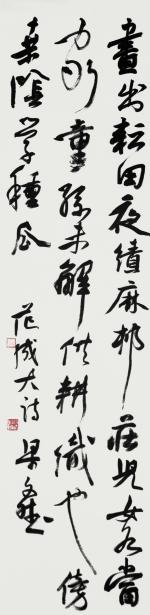 晝出耘田夜績麻邨莊兒女各當
家童孫未解供耕織也傍
桑陰学種瓜 范成大诗